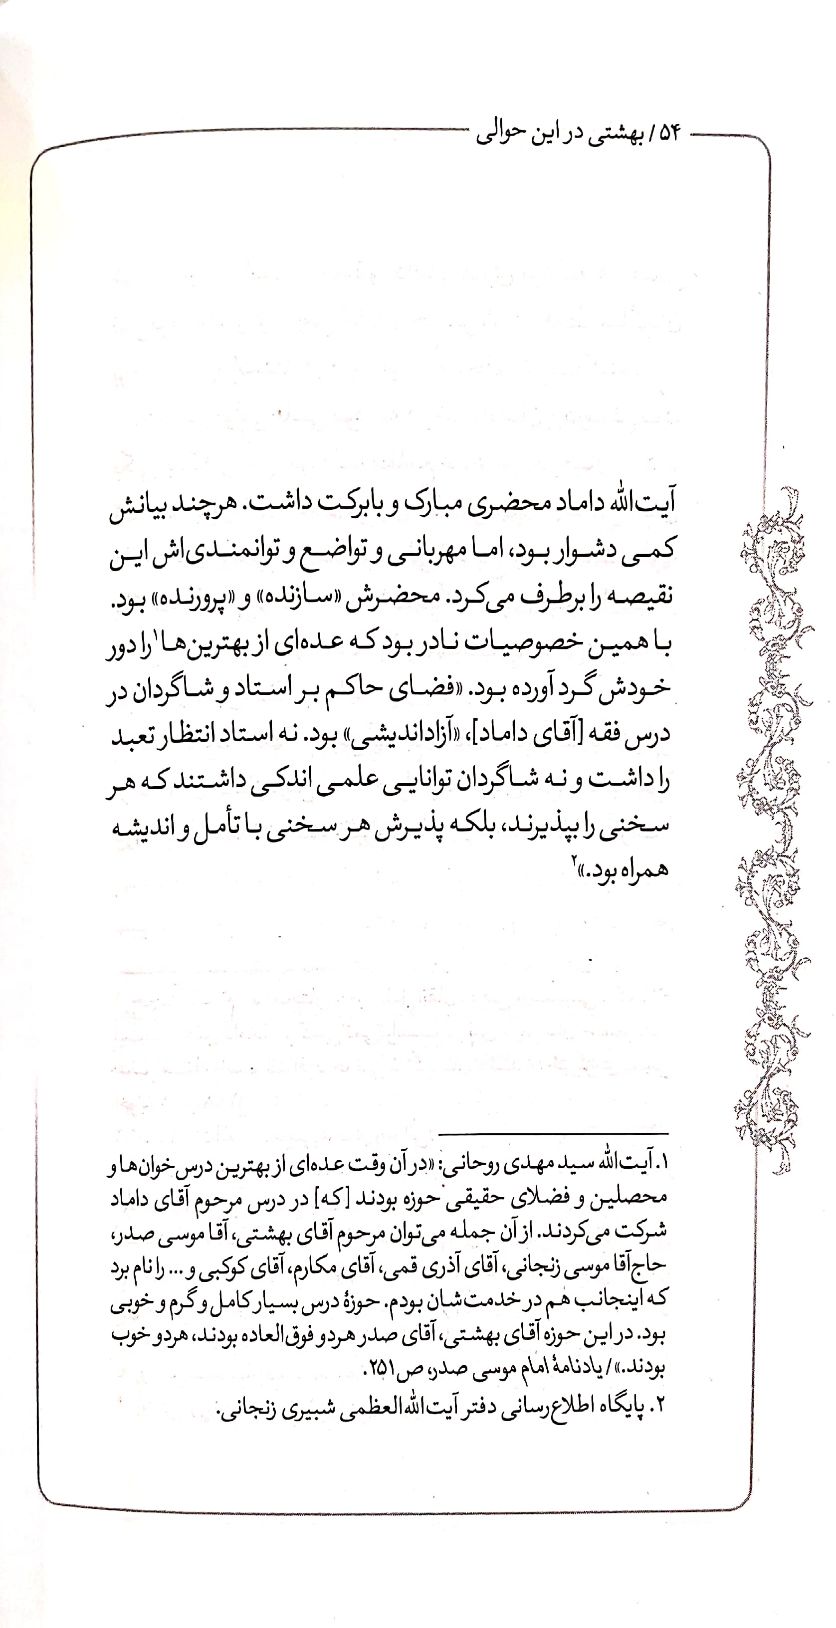 ۵۴ / بهشتی در این حوالی
آیت‌الله داماد محضری مبارک و بابرکت داشت. هرچند بیانش
کمی دشوار بود، اما مهربانی و تواضع و توانمندی‌اش این
نقیصه را برطرف می‌کرد. محضرش «سازنده» و «پرورنده» بود.
با همین خصوصیات نادر بود که عده‌ای از بهترین‌ها۱ را دور
خودش گرد آورده بود. «فضای حاکم بر استاد و شاگردان در
درس فقه [آقای داماد]، «آزاداندیشی» بود. نه استاد انتظار تعبد
را داشت و نه شاگردان توانایی علمی اندکی داشتند که هر
سخنی را بپذیرند، بلکه پذیرش هر سخنی با تأمل و اندیشه
همراه بود.»۲
۱. آیت‌الله سید مهدی روحانی: «در آن وقت عده‌ای از بهترین درس‌خوان‌ها و
محصلین و فضلای حقیقی حوزه بودند [که] در درس مرحوم آقای داماد
شرکت می‌کردند. از آن جمله می‌توان مرحوم آقای بهشتی، آقا موسی صدر،
حاج‌آقا موسی زنجانی، آقای آذری قمی، آقای مکارم، آقای کوکبی و... را نام برد
که اینجانب هم در خدمت‌شان بودم. حوزۀ درس بسیار کامل و گرم و خوبی
بود. در این حوزه آقای بهشتی، آقای صدر هردو فوق‌العاده بودند، هردو خوب
بودند.» / یادنامۀ امام موسی صدر، ص۲۵۱.
۲. پایگاه اطلاع‌رسانی دفتر آیت‌الله‌العظمی شبیری زنجانی.